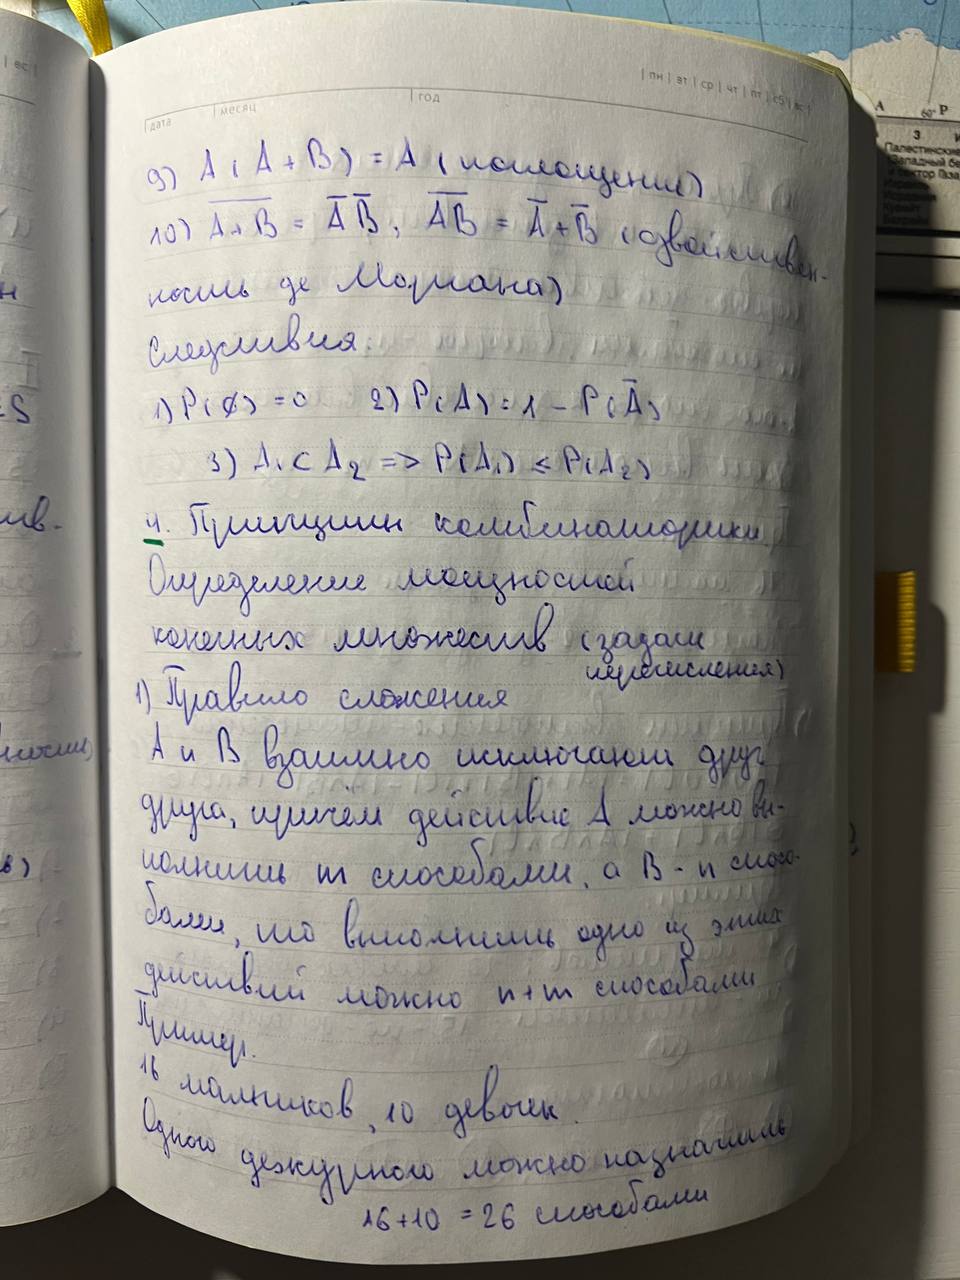 ес |
дата | месяц | год | пн | вт | ср | чт | пт | сб | вс |
9) A (A + B) = A (поглощение)
10) \overline{A+B} = \overline{A} \overline{B}, \overline{AB} = \overline{A} + \overline{B} (двойствен-
ность де Моргана)
Следствия:
1) P(∅) = 0 2) P(A) = 1 - P(\overline{A})
3) A₁ ⊂ A₂ => P(A₁) ≤ P(A₂)
4. Принципы комбинаторики.
Определение мощностей
конечных множеств (задачи
перечисления)
1) Правило сложения
A и B взаимно исключают друг
друга, причём действие A можно вы-
полнить m способами, а B - n спосо-
бами, то выполнить одно из этих
действий можно n+m способами
Пример.
16 мальчиков, 10 девочек.
Одного дежурного можно назначить
16+10 = 26 способами
A 60° P
3
Палестинские
Западный бе
и сектор Газа